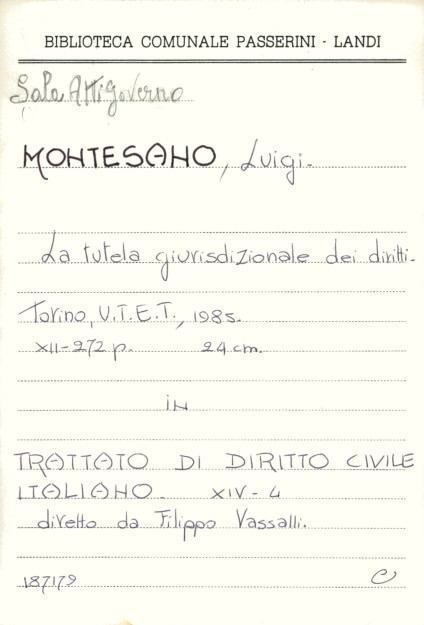 BIBLIOTECA COMUNALE PASSERINI - LANDI
Sala Atti Governo
MONTESANO, Luigi.
La tutela giurisdizionale dei diritti.
Torino, U.T.E.T., 1985.
XII-272 p. 24 cm.
in
TRATTATO DI DIRITTO CIVILE
ITALIANO. XIV-4
diretto da Filippo Vassalli.
187179 C